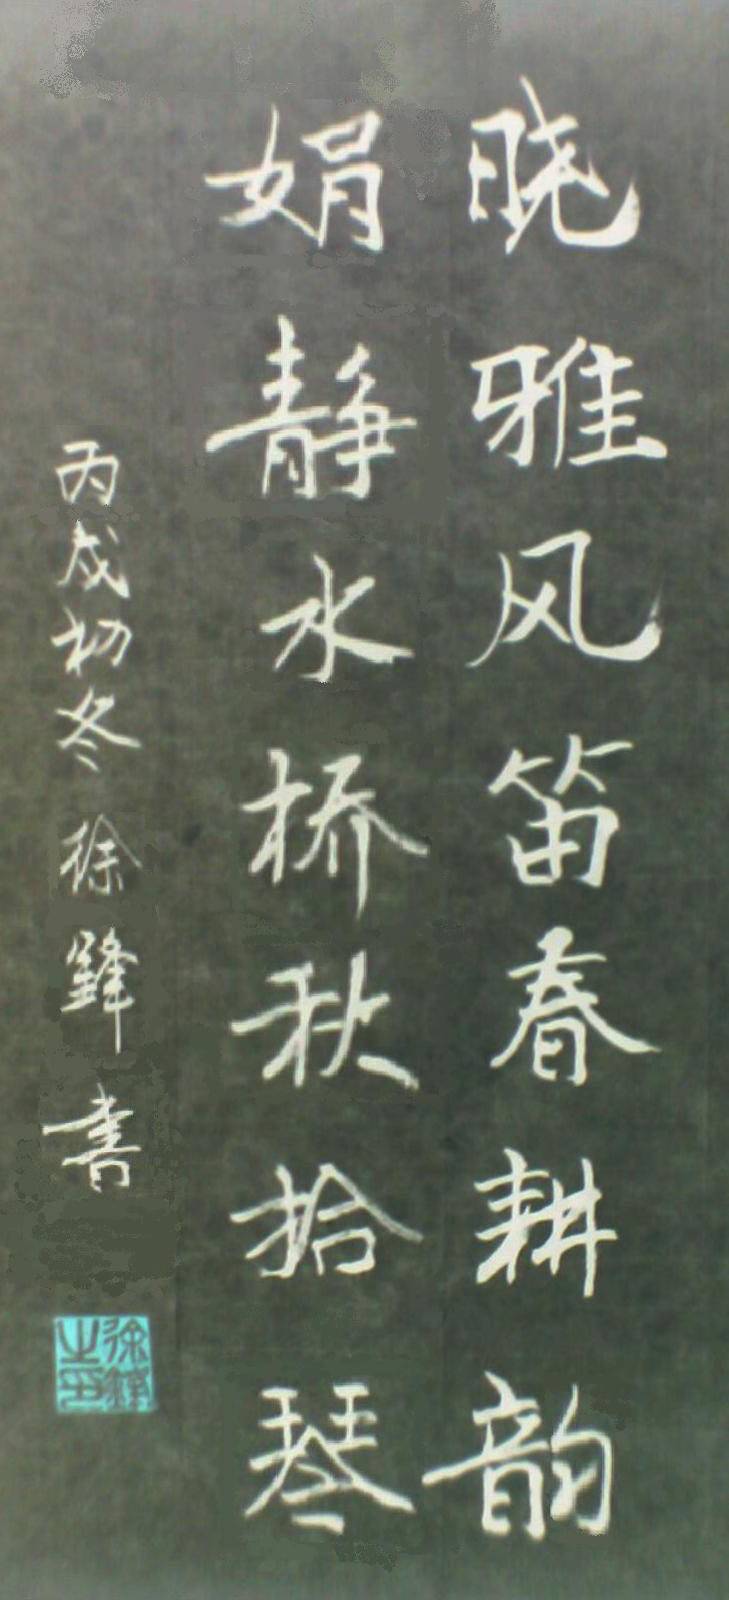 晓雅风笛春耕韵
娟静水桥秋拾琴
丙戌初冬 徐鋒书
徐鋒之印